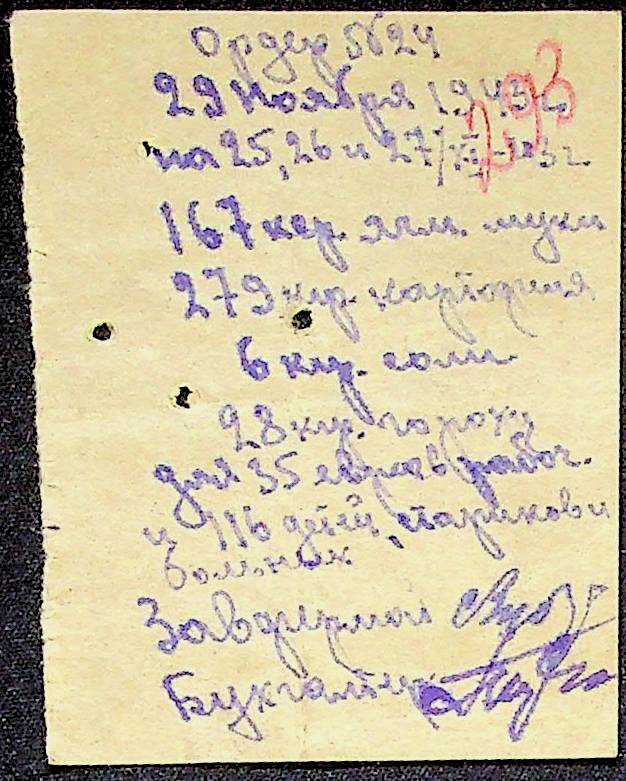 Ордер №24
29 Ноября 1943 г.
293
на 25, 26 и 27/XI-1943г.
167 кгр. ячм. муки
279 кгр. картофеля
6 кгр. соли
28 кгр. гороху
для 35 евреев рабоч.
и 116 детей, стариков и
больных
Завфермой
Бухгалтер